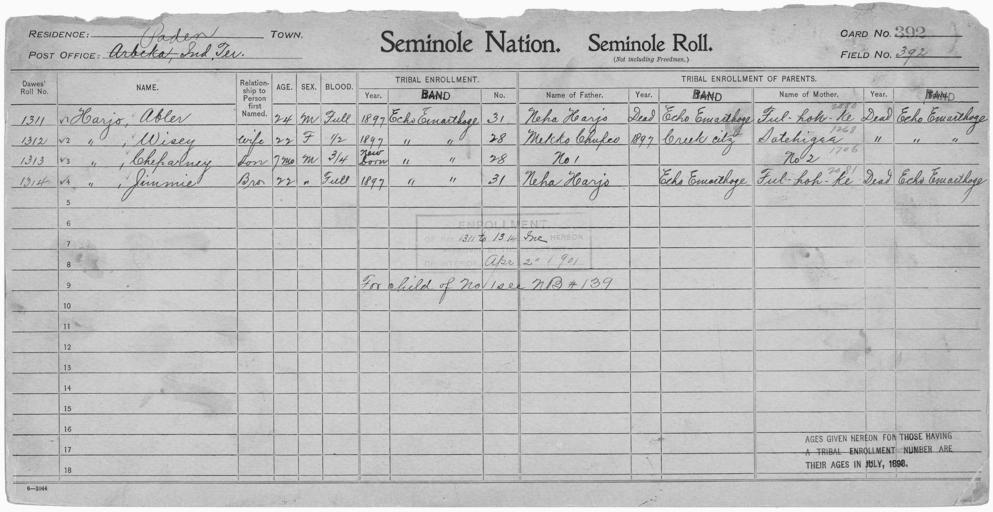 RESIDENCE: Paden TOWN.
POST OFFICE: Arbeka, Ind. Ter.
Seminole Nation. Seminole Roll.
(Not including Freedmen.)
CARD NO. 392
FIELD NO. 392
Dawes' Roll No. NAME. Relationship to Person first Named. AGE. SEX. BLOOD. TRIBAL ENROLLMENT. Year. BAND No. TRIBAL ENROLLMENT OF PARENTS. Name of Father. Year. BAND Name of Mother. Year. BAND
1311 1 Harjo, Abler 24 M Full 1897 Echo Emaithoge 31 Neha Harjo Dead Echo Emaithoge Ful-hoh-ke Dead Echo Emaithoge
1312 2 " , Wisey wife 22 F 1/2 1897 " " 28 Creek city " " "
1313 3 " , Cheparney Son 7 mo M 3/4 New Born " " 28 No 1 No 2
1314 4 " , Jimmie Bro 22 " Full 1897 " " 31 Neha Harjo Echo Emaithoge Ful-hoh-ke Dead Echo Emaithoge
5
6 ENROLLMENT
7 1311 to 1314 Inc HEREON
8 Apr 2" 1901
9 For child of No 1 see NB # 139
10
11
12
13
14
15
16
17
18
AGES GIVEN HEREON FOR THOSE HAVING
A TRIBAL ENROLLMENT NUMBER ARE
THEIR AGES IN JULY, 1898.